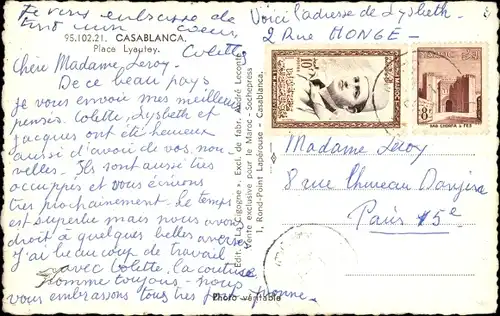 Je vous embrasse de
tout mon coeur
Colette
Voici l'adresse de Lysbeth.
2 Rue MONGE -
95.102.21. CASABLANCA.
Place Lyautey.
Chère Madame Leroy -
De ce beau pays
je vous envoie mes meilleures
pensées. Colette, Lysbeth et
Jacques ont été heureux
aussi d'avoir de vos nou-
velles. Ils sont aussi très
occupés et vous écrirons
très prochainement. Le temps
est superbe mais nous avons
droit à quelques belles averses
J'ai beaucoup de travail
avec Colette, la couture
comme toujours - nous
vous embrassons tous très
Yvonne -
Edit. "La Cigogne". Excl. de fabr. André Leconte
Vente exclusive pour le Maroc - Sochepress
1, Rond-Point Lapérouse - Casablanca.
Photo véritable
10F
MAROC
8F
BAB CHORFA A FES
Madame Leroy
8 rue
Paris 15e